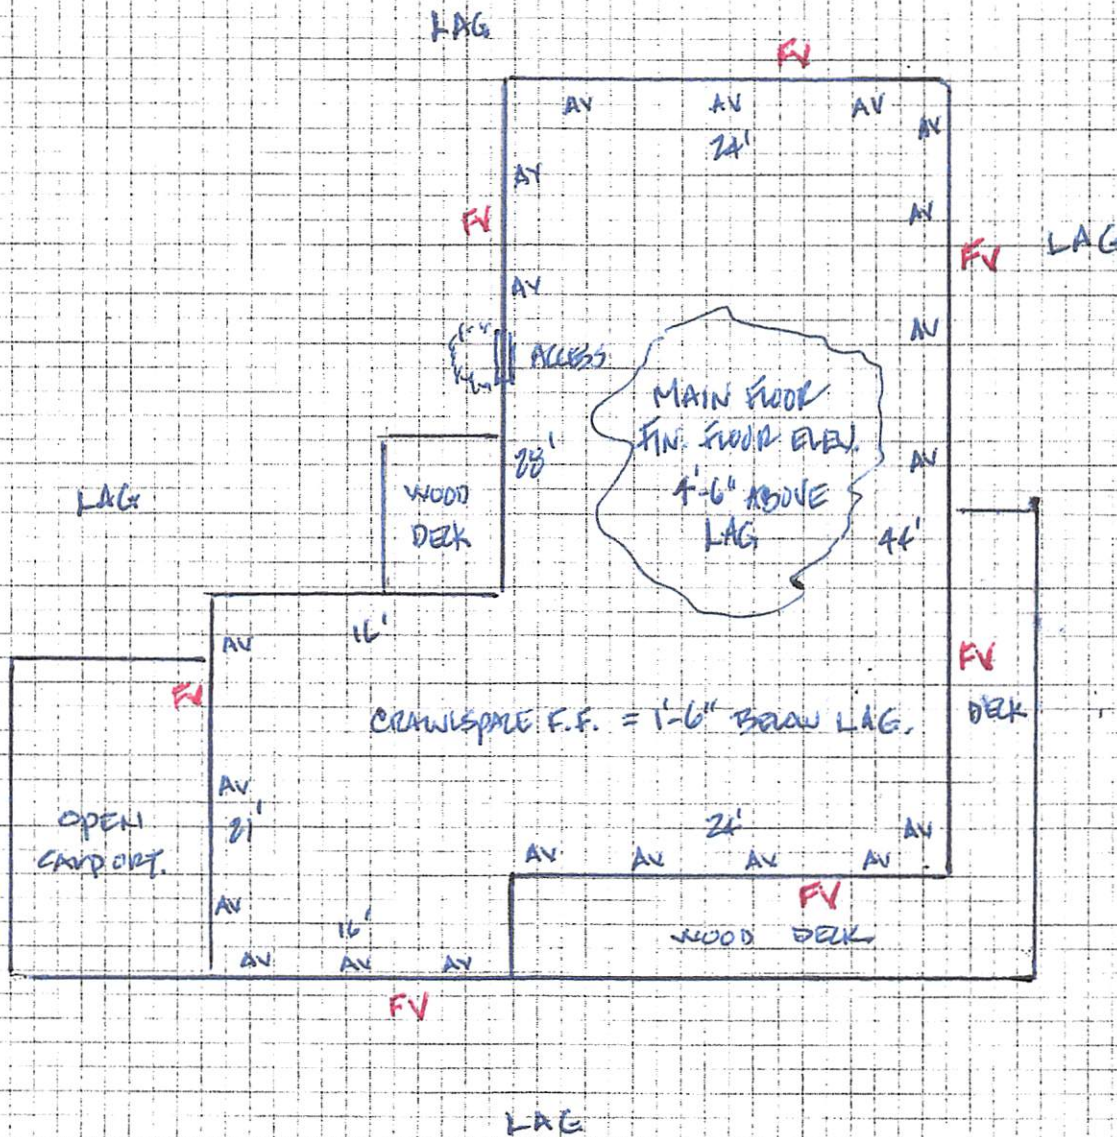 LAG
FV
AV AV AV
AV
24'
AV
AV
FV
FV
LAG
AV
AV
ACCESS
MAIN FLOOR
FIN. FLOOR ELEV.
4'-6" ABOVE
LAG
AV
28'
WOOD
DECK
LAG
44'
16'
AV
FV
FV
DECK
CRAWLSPACE F.F. = 1'-6" BELOW LAG.
AV
21'
OPEN
CARPORT.
24'
AV
AV AV AV AV
FV
WOOD DECK
AV
16'
AV AV AV
FV
LAG